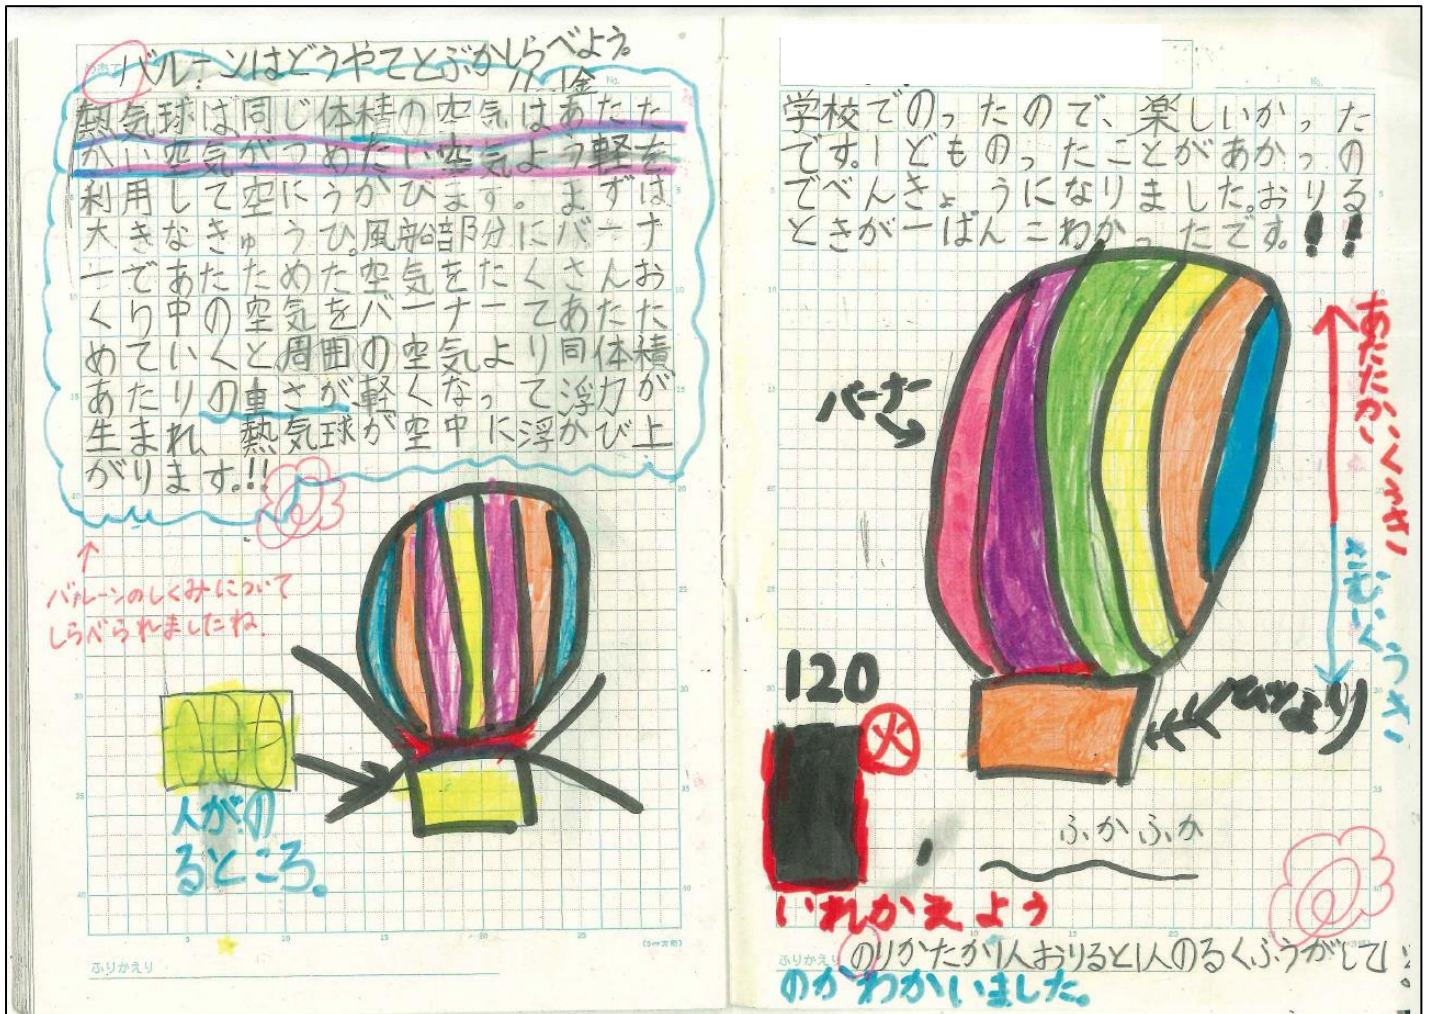 バルーンはどうやてとぶかしらべよう。
めあて
No.
熱気球は、同じ体積の空気はあたた
かい空気がつめたい空気よう軽を
利用して空にうかびます。まずは
大きなきゅうひ。風船部分にバーナ
ーであたためた空気をたくさんお
くり中の空気をバーナーてあたた
めていくと周囲の空気より同体積
あたりの重さが、軽くなって浮力が
生まれ、熱気球が空中に浮かび上
がります。!!
バルーンのしくみについて
しらべられましたね。
人がの
るところ。
ふりかえり
No.
学校でのったので、楽しいかった
です。1どものったことがあかっの
でべんきょうになりました。おりる
ときが一ばんこわかったです。!!
バーナー
あたたかいくうき
さむいくうき
120
火
いれかえよう
ふかふか
ふりかえり
のりかたか1人おりると1人のるくふうがして
のがわかいました。